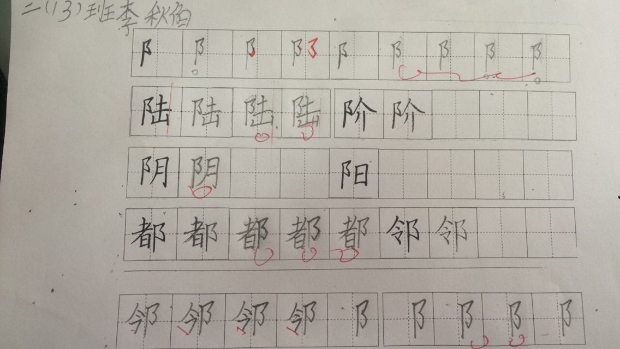 二(13)班李秋怡
阝阝阝阝阝阝阝阝阝
陆陆陆陆阶阶
阴阴阳
都都都都都邻邻
邻邻邻邻阝阝阝阝阝